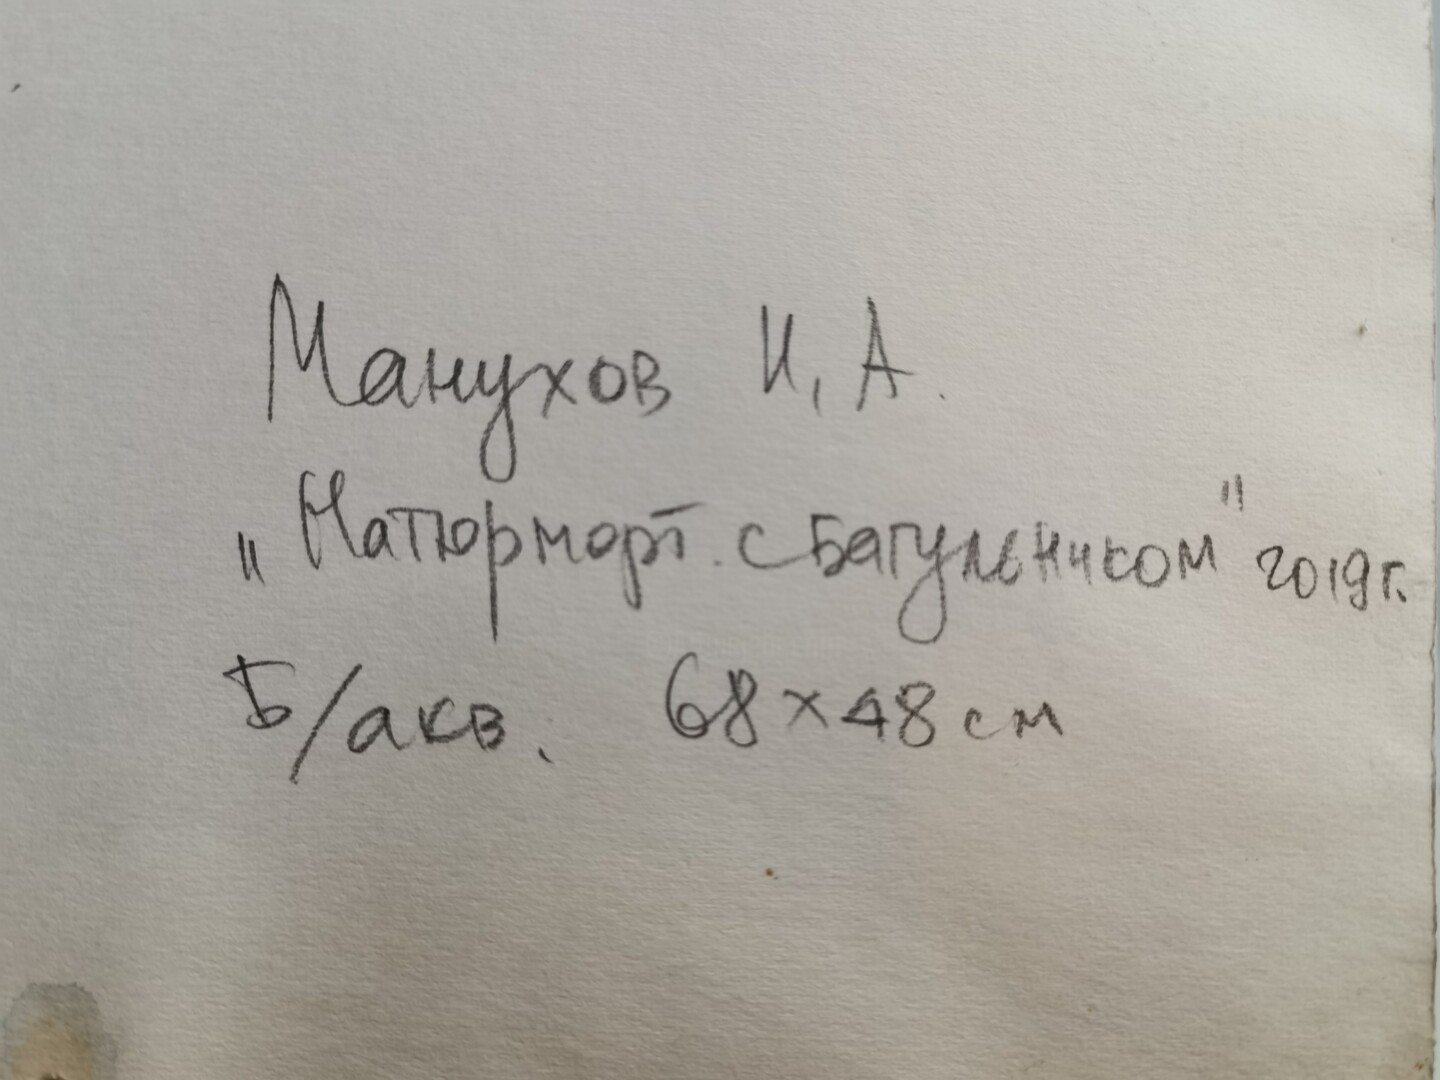 Манухов И, А.
„Натюрморт. с багульником" 2019г.
Б/акв. 68×48 см